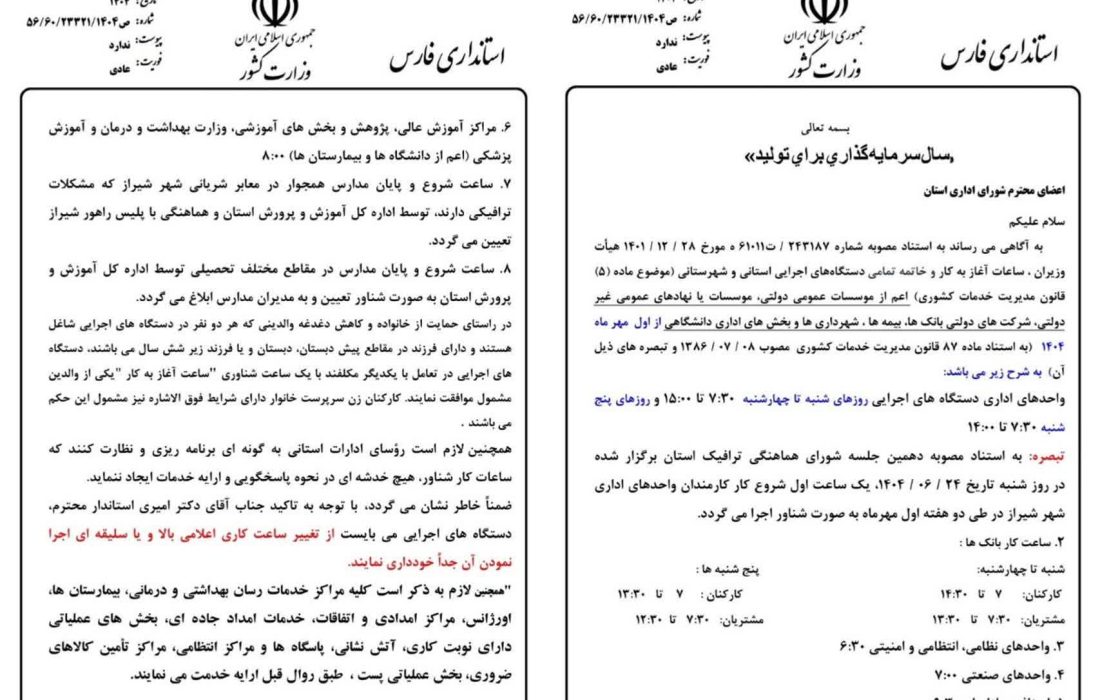 استانداری فارس
جمهوری اسلامی ایران
وزارت کشور
شماره: ص۵۶/۶۰/۲۳۳۲۱/۱۴۰۴
پیوست: ندارد
فوریت: عادی
بسمه تعالی
«سال سرمایه‌گذاری برای تولید»
اعضای محترم شورای اداری استان
سلام علیکم
به آگاهی می رساند به استناد مصوبه شماره ۲۴۳۱۸۷ / ت۶۱۰۱۱ ه مورخ ۲۸ / ۱۲ / ۱۴۰۱ هیأت
وزیران ، ساعات آغاز به کار و خاتمه تمامی دستگاه‌های اجرایی استانی و شهرستانی (موضوع ماده (۵)
قانون مدیریت خدمات کشوری) اعم از موسسات عمومی دولتی، موسسات یا نهادهای عمومی غیر
دولتی، شرکت های دولتی بانک ها، بیمه ها ، شهرداری ها و بخش های اداری دانشگاهی از اول مهر ماه
۱۴۰۴ (به استناد ماده ۸۷ قانون مدیریت خدمات کشوری مصوب ۰۸ / ۰۷ / ۱۳۸۶ و تبصره های ذیل
آن) به شرح زیر می باشد:
واحدهای اداری دستگاه های اجرایی روزهای شنبه تا چهارشنبه ۷:۳۰ تا ۱۵:۰۰ و روزهای پنج
شنبه ۷:۳۰ تا ۱۴:۰۰
تبصره: به استناد مصوبه دهمین جلسه شورای هماهنگی ترافیک استان برگزار شده
در روز شنبه تاریخ ۲۴ / ۰۶ / ۱۴۰۴، یک ساعت اول شروع کار کارمندان واحدهای اداری
شهر شیراز در طی دو هفته اول مهرماه به صورت شناور اجرا می گردد.
۲. ساعت کار بانک ها :
شنبه تا چهارشنبه: پنج شنبه ها :
کارکنان: ۷ تا ۱۴:۳۰ کارکنان : ۷ تا ۱۳:۳۰
مشتریان: ۷:۳۰ تا ۱۳:۳۰ مشتریان: ۷:۳۰ تا ۱۲:۳۰
۳. واحدهای نظامی، انتظامی و امنیتی ۶:۳۰
۴. واحدهای صنعتی ۷:۰۰
استانداری فارس
جمهوری اسلامی ایران
وزارت کشور
شماره: ص۵۶/۶۰/۲۳۳۲۱/۱۴۰۴
پیوست: ندارد
فوریت: عادی
۶. مراکز آموزش عالی، پژوهش و بخش های آموزشی، وزارت بهداشت و درمان و آموزش
پزشکی (اعم از دانشگاه ها و بیمارستان ها) ۸:۰۰
۷. ساعت شروع و پایان مدارس همجوار در معابر شریانی شهر شیراز که مشکلات
ترافیکی دارند، توسط اداره کل آموزش و پرورش استان و هماهنگی با پلیس راهور شیراز
تعیین می گردد.
۸. ساعت شروع و پایان مدارس در مقاطع مختلف تحصیلی توسط اداره کل آموزش و
پرورش استان به صورت شناور تعیین و به مدیران مدارس ابلاغ می گردد.
در راستای حمایت از خانواده و کاهش دغدغه والدینی که هر دو نفر در دستگاه های اجرایی شاغل
هستند و دارای فرزند در مقاطع پیش دبستان، دبستان و یا فرزند زیر شش سال می باشند، دستگاه
های اجرایی در تعامل با یکدیگر مکلفند با یک ساعت شناوری "ساعت آغاز به کار "یکی از والدین
مشمول موافقت نمایند. کارکنان زن سرپرست خانوار دارای شرایط فوق الاشاره نیز مشمول این حکم
می باشند .
همچنین لازم است رؤسای ادارات استانی به گونه ای برنامه ریزی و نظارت کنند که
ساعات کار شناور، هیچ خدشه ای در نحوه پاسخگویی و ارایه خدمات ایجاد ننماید.
ضمناً خاطر نشان می گردد، با توجه به تاکید جناب آقای دکتر امیری استاندار محترم،
دستگاه های اجرایی می بایست از تغییر ساعت کاری اعلامی بالا و یا سلیقه ای اجرا
نمودن آن جداً خودداری نمایند.
"همچنین لازم به ذکر است کلیه مراکز خدمات رسان بهداشتی و درمانی، بیمارستان ها،
اورژانس، مراکز امدادی و اتفاقات، خدمات امداد جاده ای، بخش های عملیاتی
دارای نوبت کاری، آتش نشانی، پاسگاه ها و مراکز انتظامی، مراکز تأمین کالاهای
ضروری، بخش عملیاتی پست ، طبق روال قبل ارایه خدمت می نمایند.